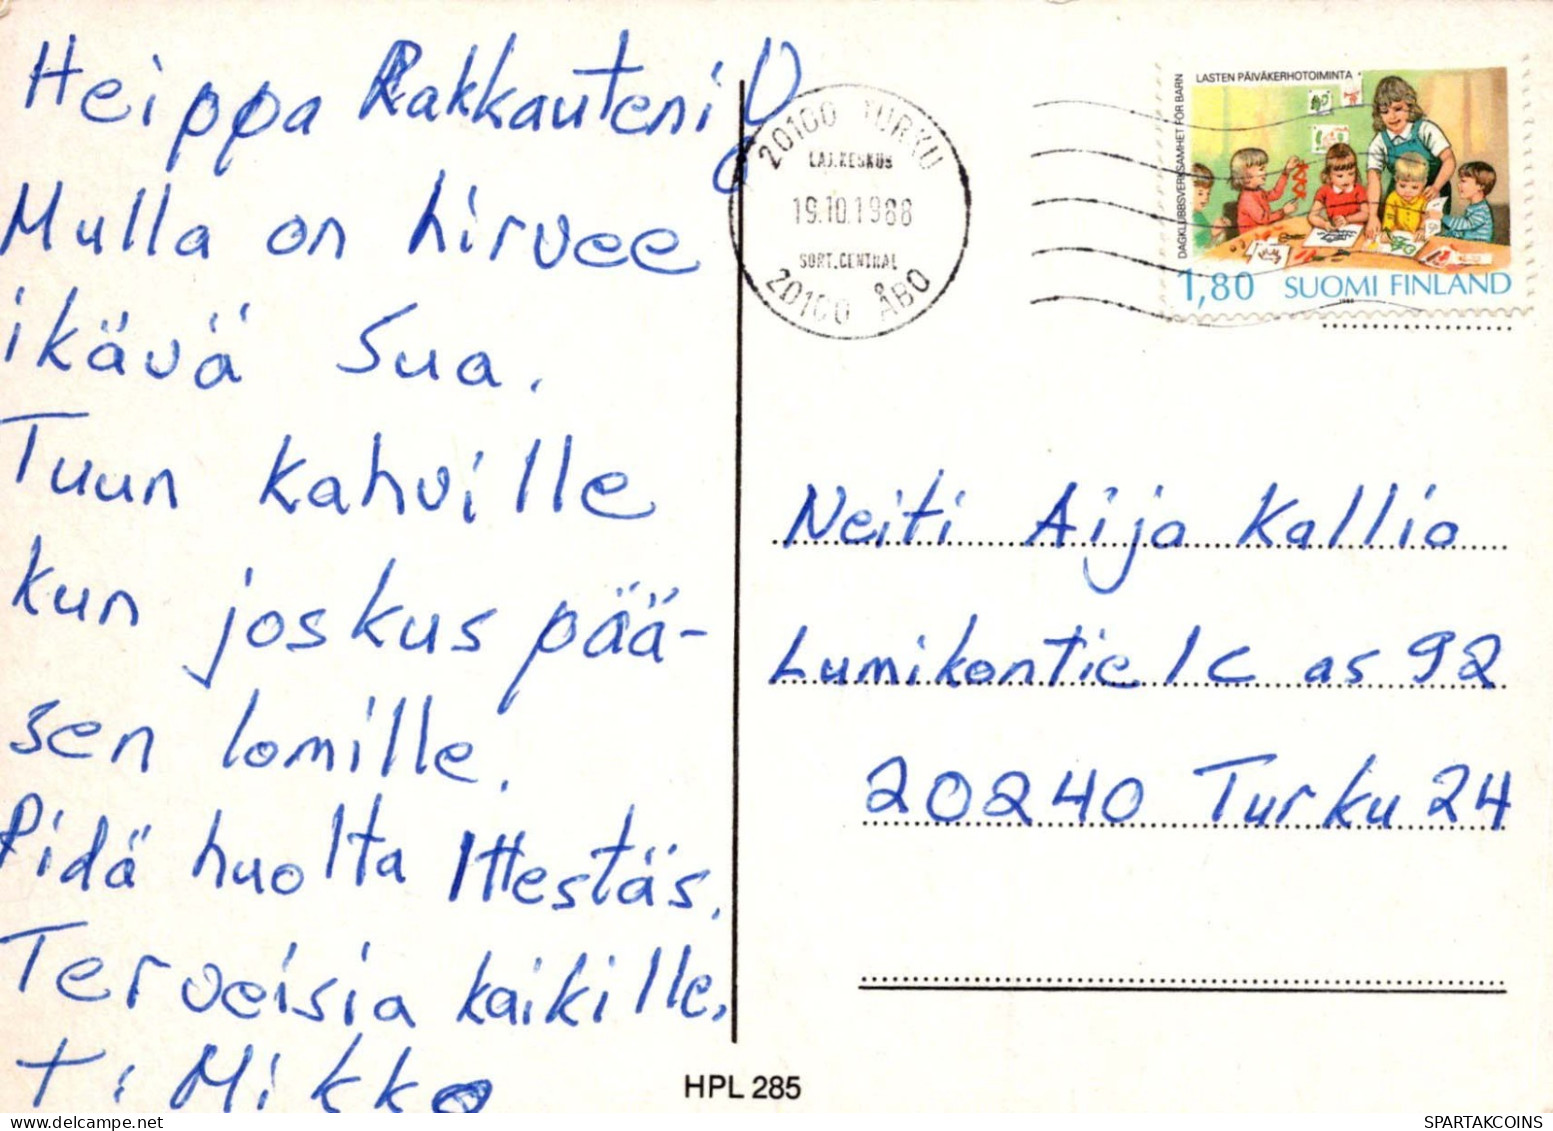 Heippa Rakkauteni!
Mulla on hirvee
ikävä Sua.
Tuun kahville
kun joskus pää-
sen lomille.
Pidä huolta Ittestäs.
Terveisiä kaikille.
t: Mikko
20100 TURKU
LAJ.KESKUS
19.10.1988
SORT.CENTRAL
20100 ÅBO
LASTEN PÄIVÄKERHOTOIMINTA
DAGKLUBBSVERKSAMHET FÖR BARN
1,80 SUOMI FINLAND
1988
Neiti Aija Kallio
Lumikontie 1 C as 92
20240 Turku 24
HPL 285
SPARTAKCOINS